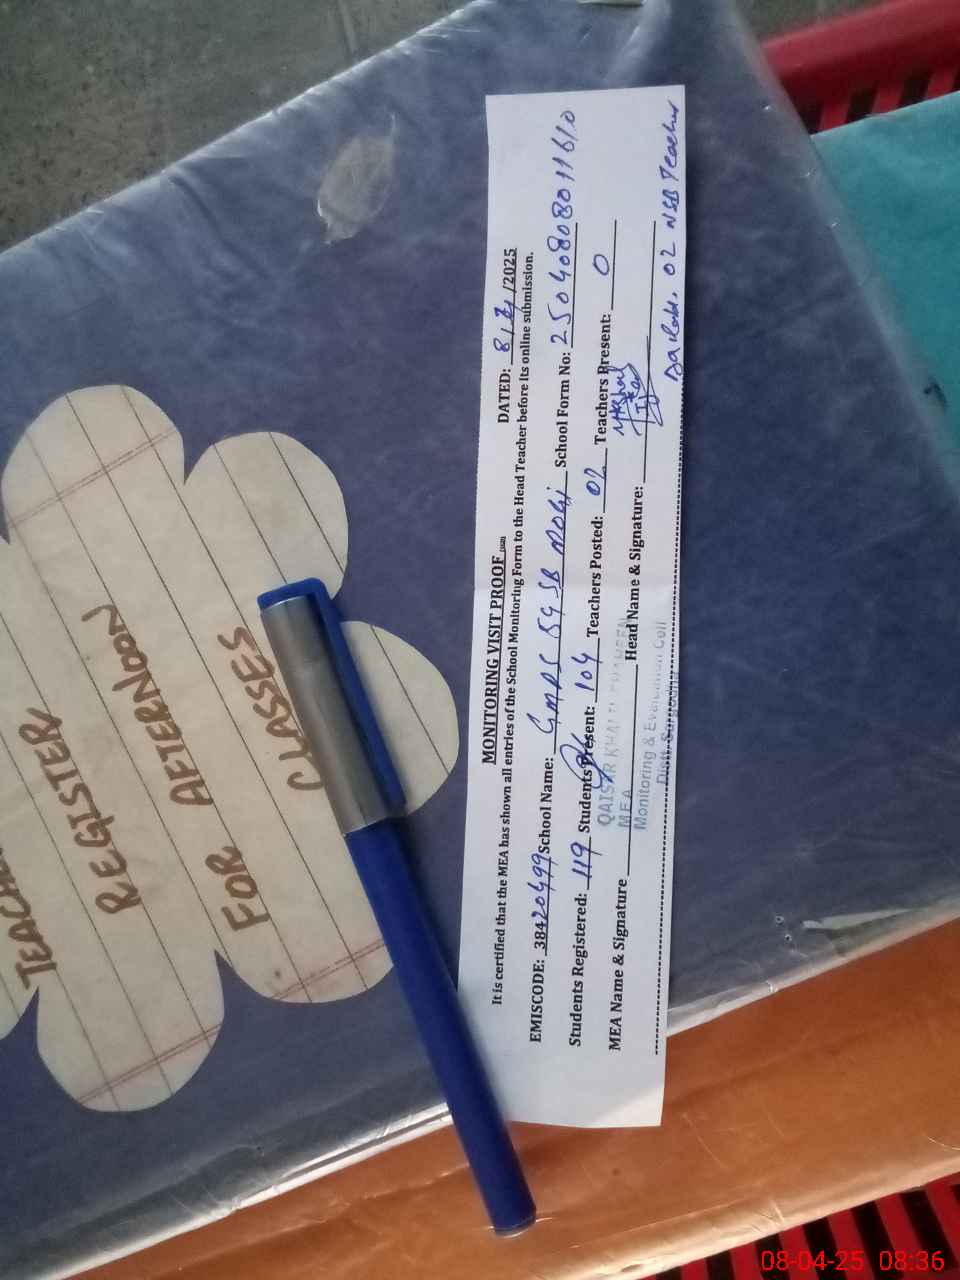 TEACHER
REGISTER
AFTERNOON
FOR
CLASSES
MONITORING VISIT PROOF
DATED: 8/4/2025
It is certified that the MEA has shown all entries of the School Monitoring Form to the Head Teacher before its online submission.
EMISCODE: 38420499 School Name: GMPS 59 SB School Form No: 2504080801161.0
Students Registered: 119 Students Present: 104 Teachers Posted: 02 Teachers Present: 0
MEA Name & Signature Head Name & Signature:
QAISAR KHALIL
MEA
Monitoring & Evaluation Cell
Distt. Sargodha
02 NSB Teacher
08-04-25 08:36